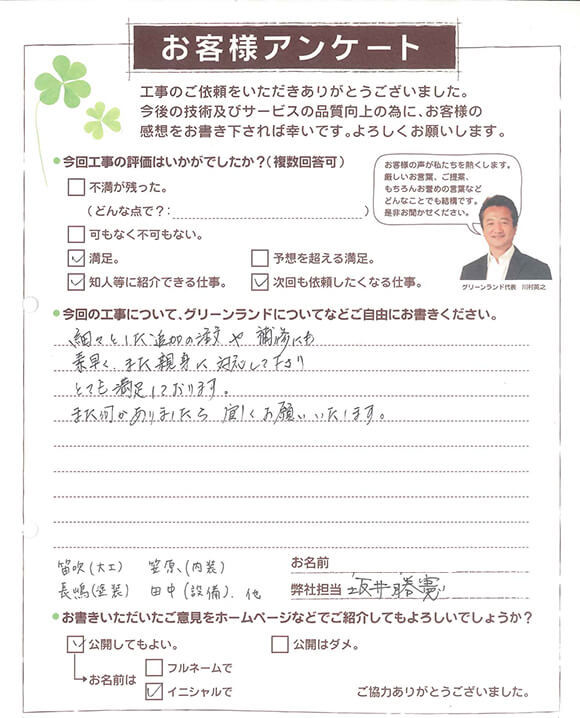 お客様アンケート
工事のご依頼をいただきありがとうございました。
今後の技術及びサービスの品質向上の為に、お客様の
感想をお書き下されば幸いです。よろしくお願いします。
今回工事の評価はいかがでしたか?(複数回答可)
不満が残った。
(どんな点で?: )
可もなく不可もない。
満足。
予想を超える満足。
知人等に紹介できる仕事。
次回も依頼したくなる仕事。
お客様の声が私たちを熱くします。
厳しいお言葉、ご提案、
もちろんお誉めの言葉など
どんなことでも結構です。
是非お聞かせください。
グリーンランド代表 川村英之
今回の工事について、グリーンランドについてなどご自由にお書きください。
細々とした追加の注文や補修にも
素早く、また親身に対応して下さり
とても満足しております。
また何かありましたら宜しくお願いいたします。
笛吹(大工) 笠原、(内装)
長嶋(塗装) 田中(設備)、他
お名前
弊社担当 坂井勝寛
お書きいただいたご意見をホームページなどでご紹介してもよろしいでしょうか?
公開してもよい。
公開はダメ。
お名前は
フルネームで
イニシャルで
ご協力ありがとうございました。